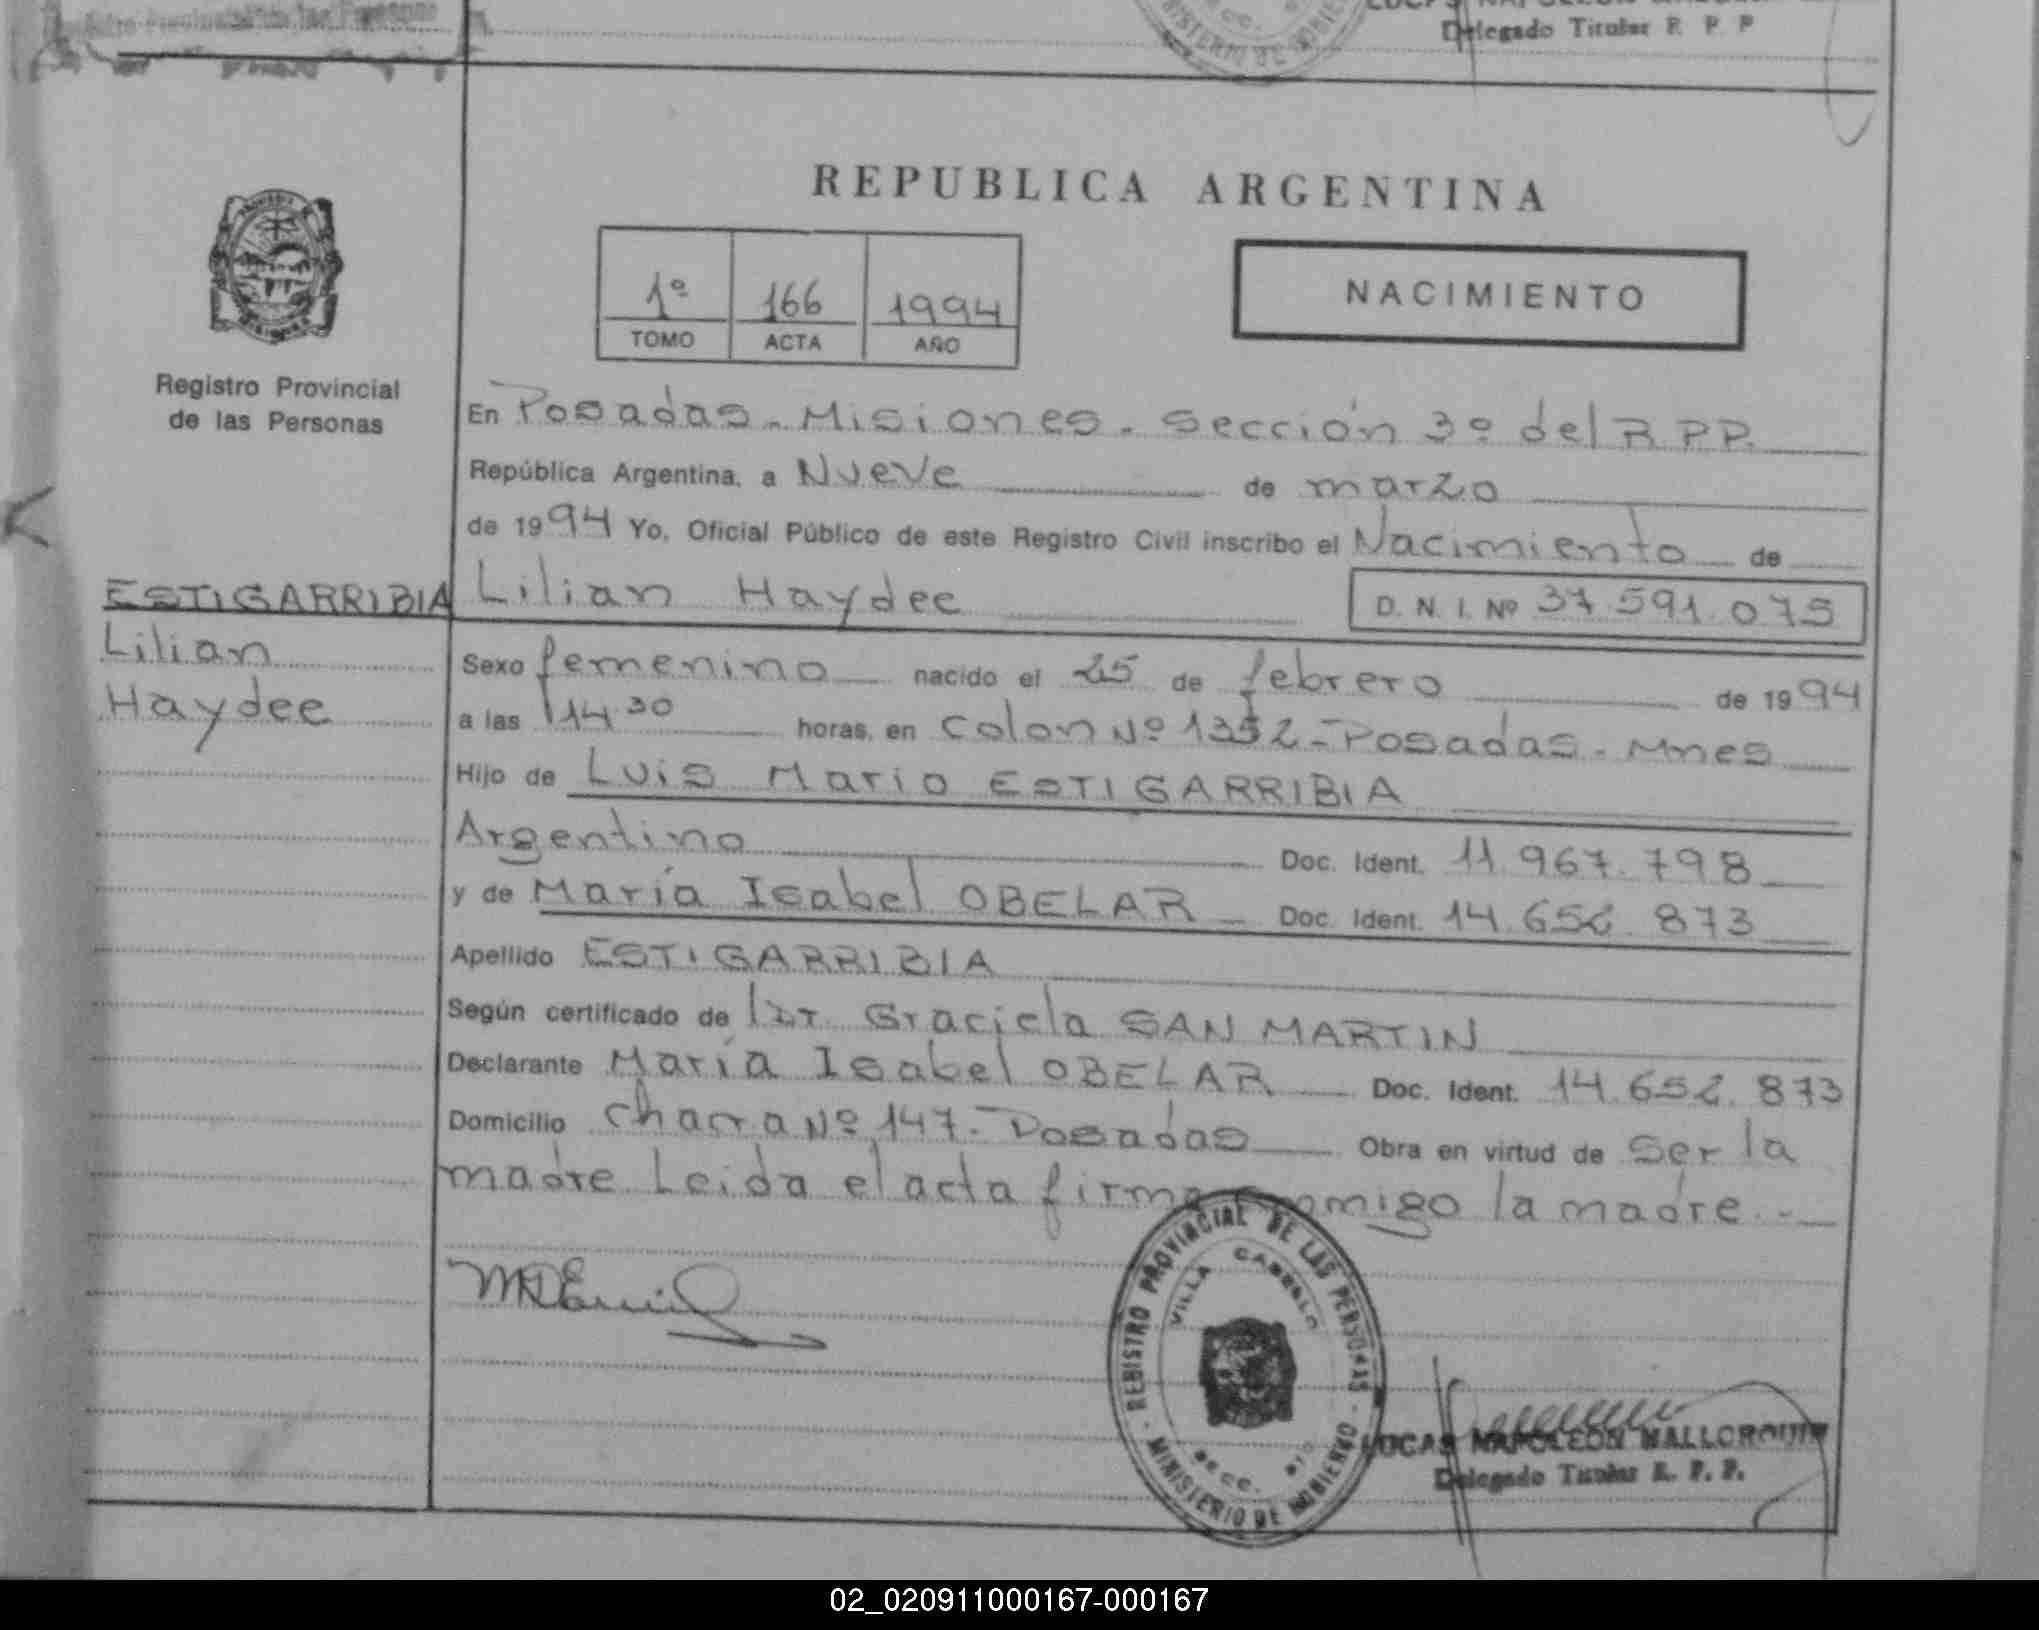 Delegado Titular R P P
REPUBLICA ARGENTINA
1º 166 1994
TOMO ACTA AÑO
NACIMIENTO
Registro Provincial
de las Personas
En Posadas - Misiones - Sección 3º del R PP.
República Argentina, a Nueve de marzo
de 1994 Yo, Oficial Público de este Registro Civil inscribo el Nacimiento de
Lilian Haydee D. N. I. Nº 37.591.075
ESTIGARRIBIA
Lilian
Haydee
Sexo femenino nacido el 25 de febrero de 1994
a las 14 30 horas, en Colon Nº 1352 - Posadas - Mnes
Hijo de Luis Mario ESTIGARRIBIA
Argentino Doc. Ident. 11.967.798
y de María Isabel OBELAR Doc. Ident. 14.652.873
Apellido ESTIGARRIBIA
Según certificado de Dr. Graciela SAN MARTIN
Declarante María Isabel OBELAR Doc. Ident. 14.652.873
Domicilio Chacra Nº 147 - Posadas Obra en virtud de ser la
madre. Leida el acta firma conmigo la madre. -
REGISTRO PROVINCIAL DE LAS PERSONAS
VILLA CABELLO
SECC.
MINISTERIO DE GOBIERNO
LUCAS NAPOLEON MALLORQUIN
Delegado Titular R. P. P.
02_020911000167-000167